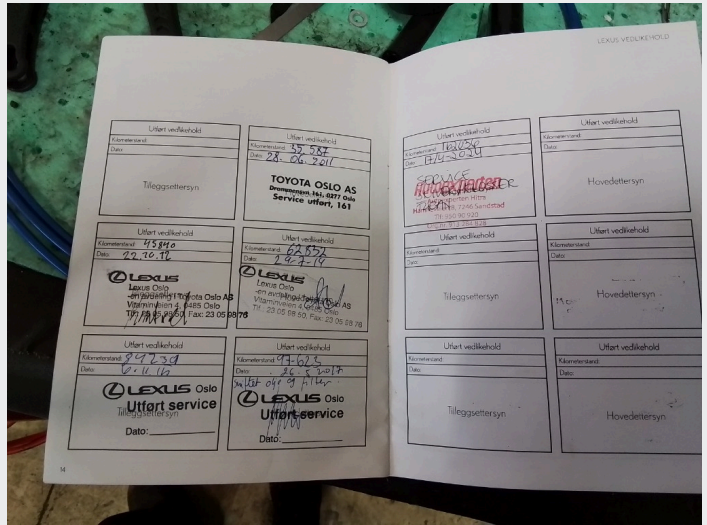 LEXUS VEDLIKEHOLD
Utført vedlikehold
Kilometerstand:
Dato:
Tilleggsettersyn
Utført vedlikehold
Kilometerstand: 35 587
Dato: 28.06.2011
TOYOTA OSLO AS
Drammensvei. 161, 0277 Oslo
Service utført, 161
Utført vedlikehold
Kilometerstand: 45840
Dato: 22.10.12
LEXUS
Lexus Oslo
-en avdeling i Toyota Oslo AS
Vitaminveien 4, 0485 Oslo
Tlf: 23 05 98 50, Fax: 23 05 98 76
Utført vedlikehold
Kilometerstand:
Dato: 29-7-14
LEXUS
Lexus Oslo
-en avdeling i Toyota Oslo AS
Vitaminveien 4, 0485 Oslo
Tlf.: 23 05 98 50, Fax: 23 05 98 76
Utført vedlikehold
Kilometerstand: 84239
Dato: 6.11.16
LEXUS Oslo
Utført service
Tilleggsettersyn
Dato:
Utført vedlikehold
Kilometerstand: 97-623
Dato: 26.5 2017
skiftet olje og filter
LEXUS Oslo
Utført service
Dato:
14
Utført vedlikehold
Kilometerstand:
Dato: 17/4-2024
SERVICE
7246 Sandstad
Utført vedlikehold
Kilometerstand:
Dato:
Hovedettersyn
Utført vedlikehold
Kilometerstand:
Dato:
Tilleggsettersyn
Utført vedlikehold
Kilometerstand:
Dato:
Hovedettersyn
Utført vedlikehold
Kilometerstand:
Dato:
Tilleggsettersyn
Utført vedlikehold
Kilometerstand:
Dato:
Hovedettersyn